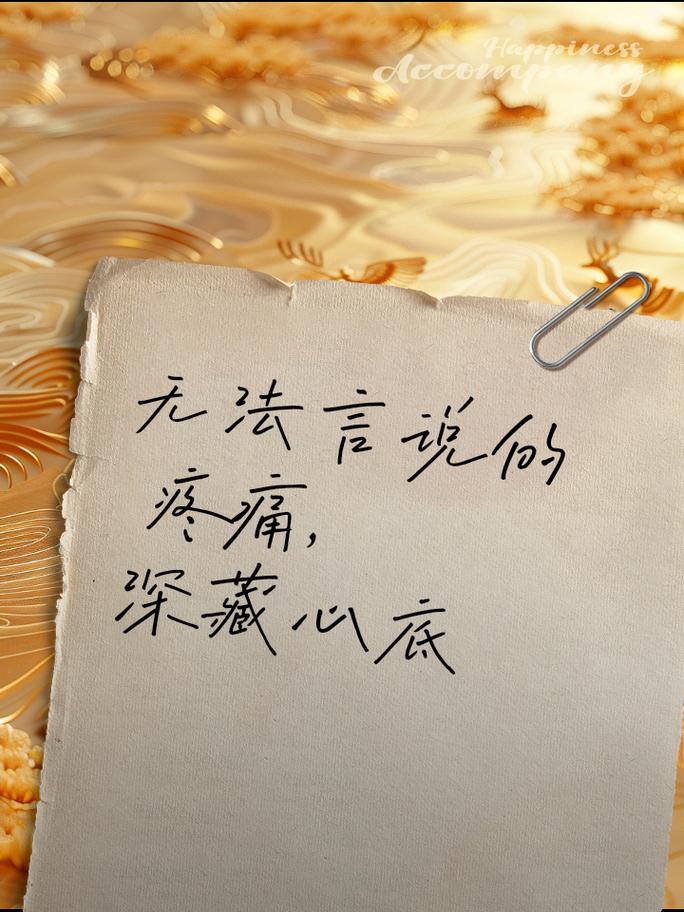 Happiness
Accompany
无法言说的
疼痛，
深藏心底